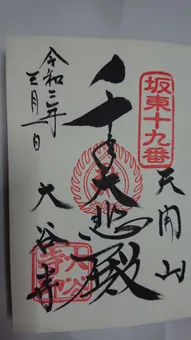 坂東十九番
天開山
千手大悲殿
大谷寺
令和二年
三月一日
大谷寺